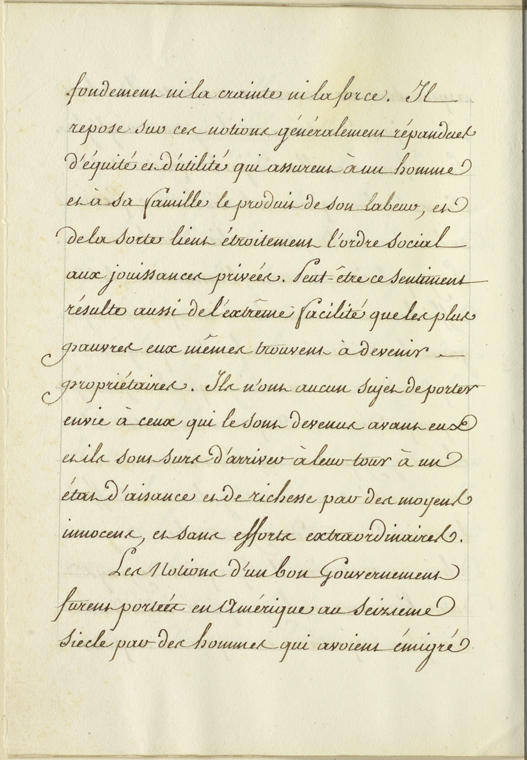 fondement ni la crainte ni la force. Il
repose sur ces notions généralement répandues
d'équité et d'utilité qui assurent à un homme
et à sa famille le produit de son labeur, et
de la sorte lient étroitement l'ordre social
aux jouissances privées. Peut-être ce sentiment
résulte aussi de l'extrême facilité que les plus
pauvres eux mêmes trouvent à devenir
propriétaires. Ils n'ont aucun sujet de porter
envie à ceux qui le sont devenus avant eux
et ils sont surs d'arriver à leur tour à un
état d'aisance et de richesse par des moyens
innocens, et sans efforts extraordinaires.
Les Notions d'un bon Gouvernement
furent portées en Amérique au Seizieme
siecle par des hommes qui avoient émigré